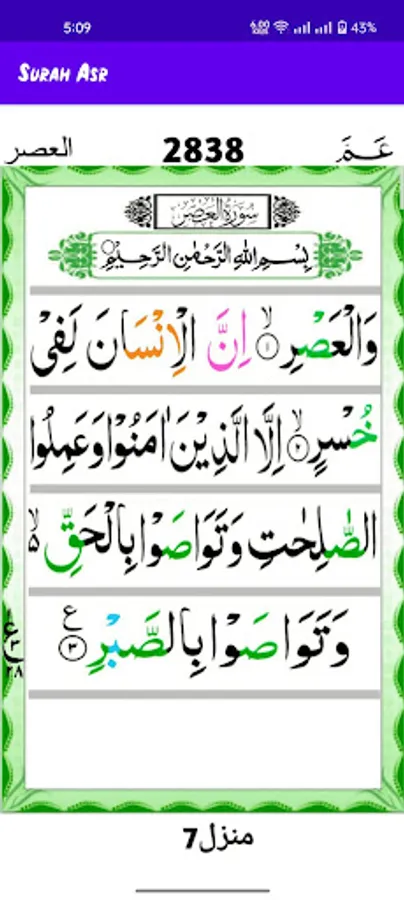 5:09 6.00 KB/S 43%
Surah Asr
العصر 2838 عَمَّ
سُورَةُ الْعَصْرِ
بِسْمِ اللهِ الرَّحْمٰنِ الرَّحِيْمِ
وَالْعَصْرِ ۙ۱ اِنَّ الْاِنْسَانَ لَفِیْ
خُسْرٍ ۙ۲ اِلَّا الَّذِیْنَ اٰمَنُوْا وَعَمِلُوا
الصّٰلِحٰتِ وَتَوَاصَوْا بِالْحَقِّ ۙ۬
وَتَوَاصَوْا بِالصَّبْرِ ۳ ع
ع
۲۸
منزل7